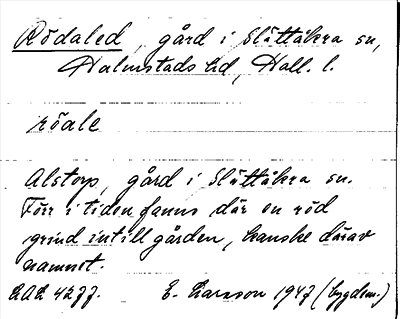 Rödaled, gård i Slättåkra sn,
Halmstads hd, Hall. l.
röale
Alstorp, gård i Slättåkra sn.
Förr i tiden fanns där en röd
grind intill gården, kanske därav
namnet.
LAL 4277. E. Larsson 1947 (bygdem.)